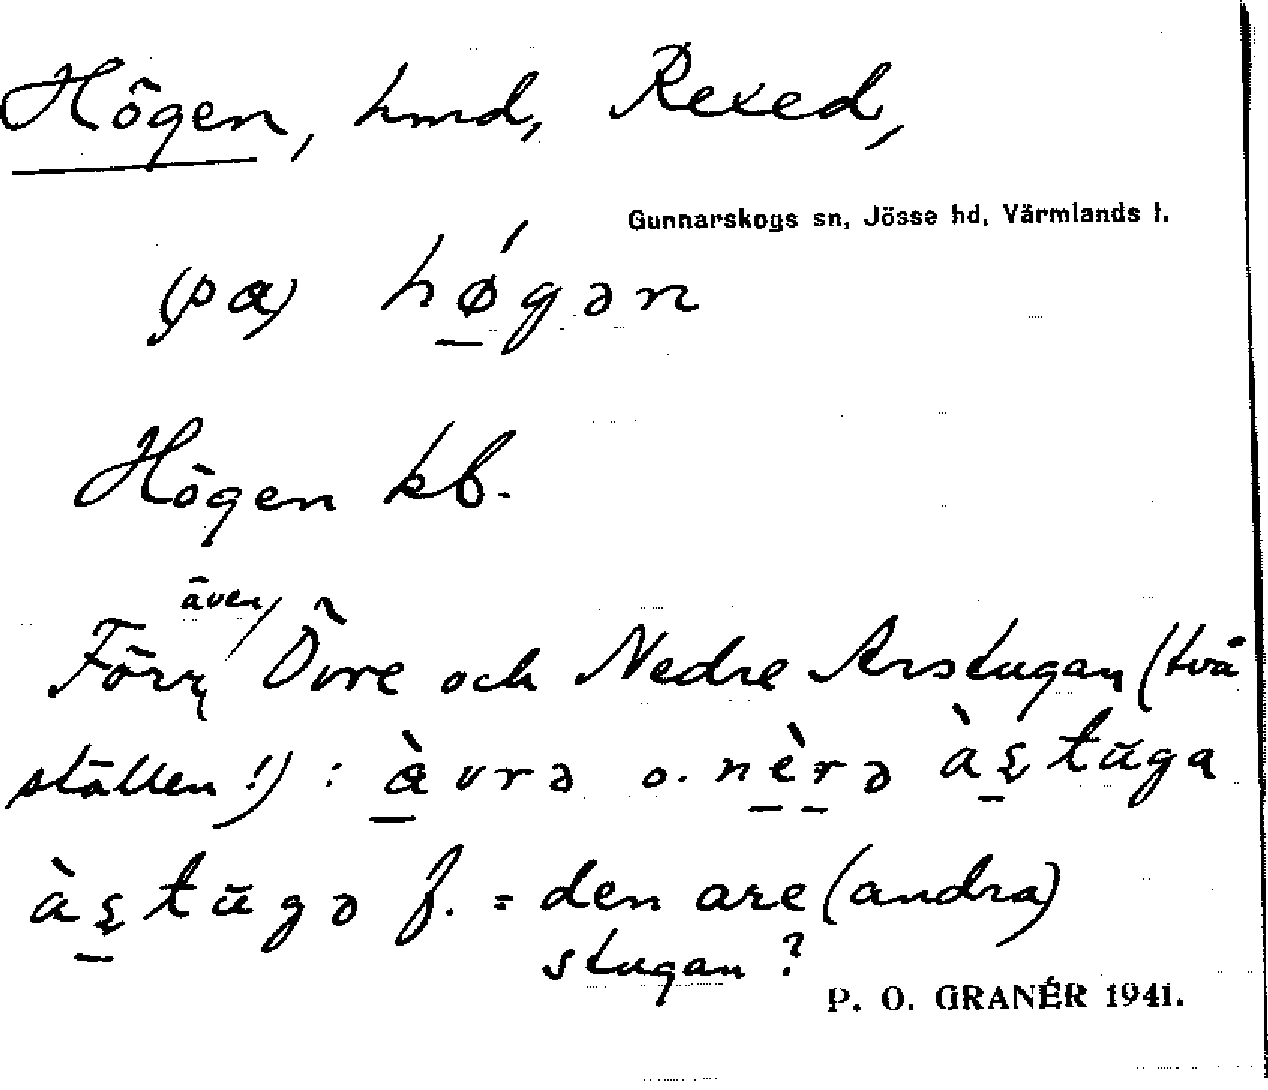 Högen, hmd, Rexed,
Gunnarskogs sn, Jösse hd, Värmlands l.
(pα) hǿgən
Högen kb.
även
Förr Övre och Nedre Arstugan (två
ställen!) : àvrə o. nèrə àştùga
àştùgə f. = den are (andra)
stugan?
P. O. GRANÉR 1941.